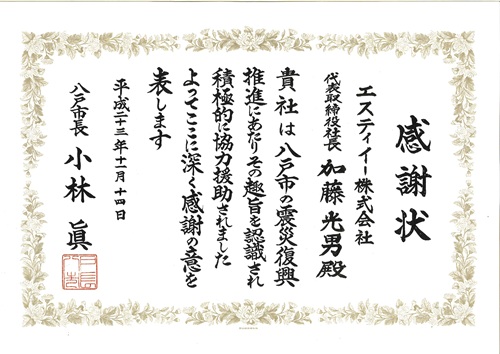 感謝状
エスティイー株式会社
代表取締役社長 加藤光男殿
貴社は八戸市の震災復興
推進にあたりその趣旨を認識され
積極的に協力援助されました
よってここに深く感謝の意を
表します
平成二十三年十一月十四日
八戸市長 小林眞